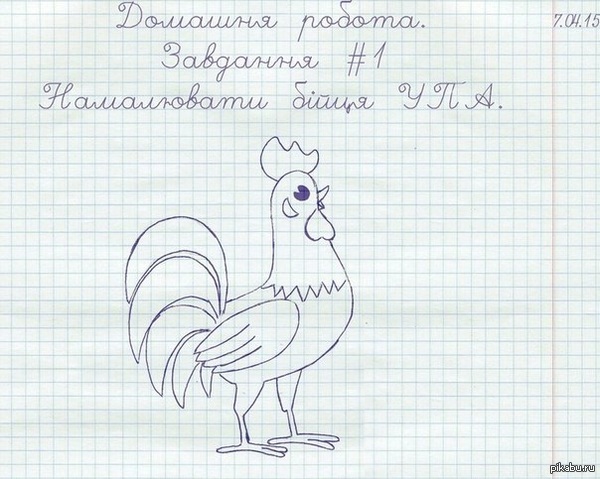 Домашня робота.
7.04.15
Завдання #1
Намалювати бійця УПА.
pikabu.ru